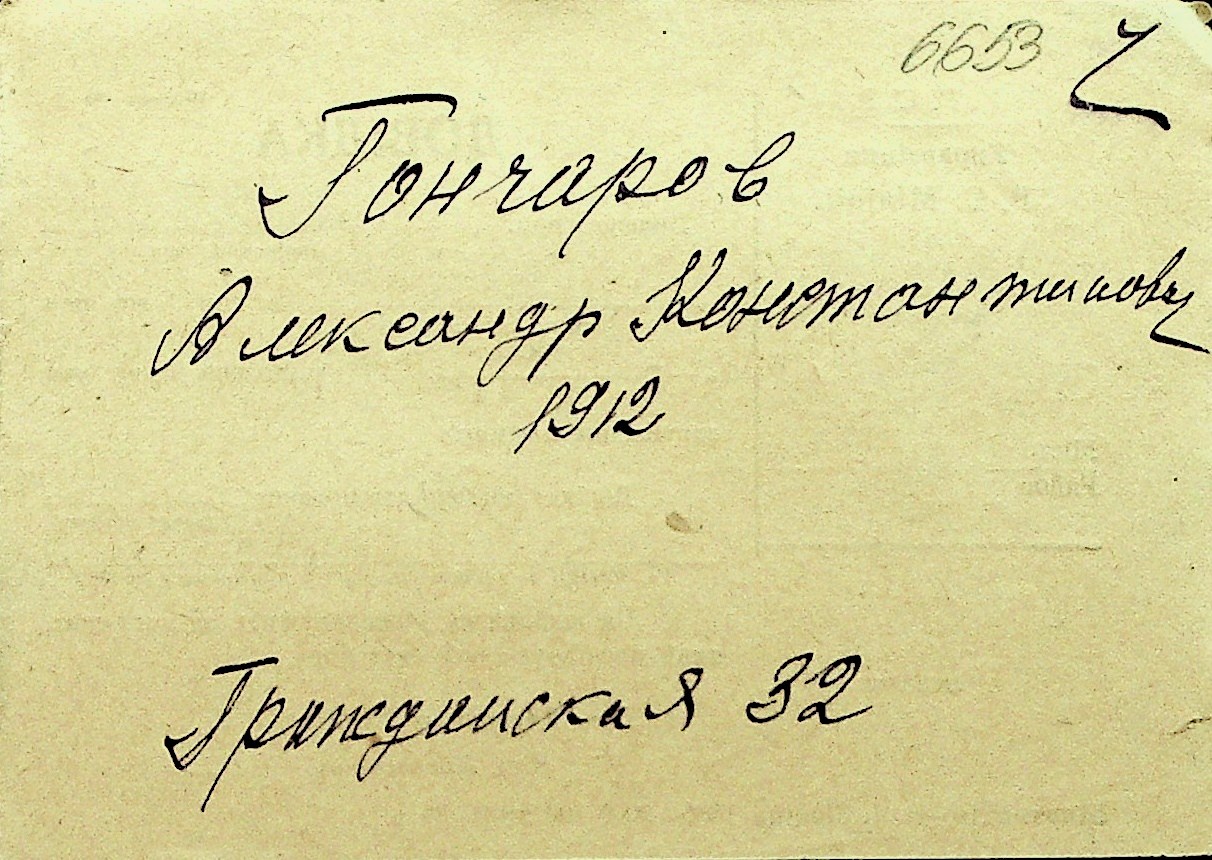 6653 Ч
Гончаров
Александр Константинович
1912
Гражданская 32